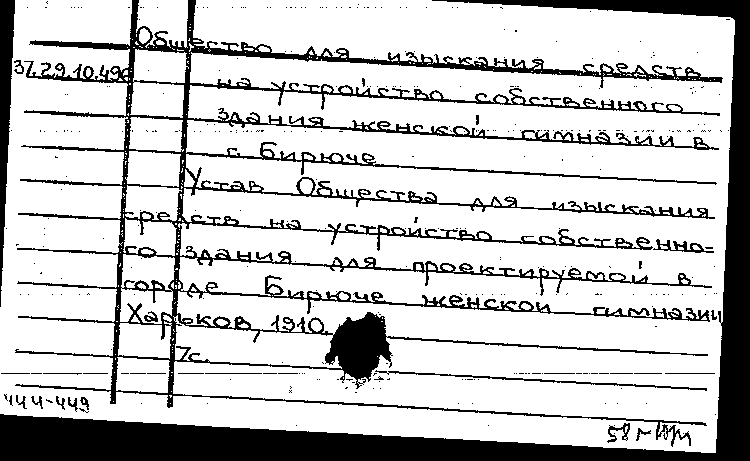 Общество для изыскания средств
37.29.10.496
на устройство собственного
здания женской гимназии в
г. Бирюче
Устав Общества для изыскания
средств на устройство собственно=
го здания для проектируемой в
городе Бирюче женской гимназии
Харьков, 1910.
7с.
444-449